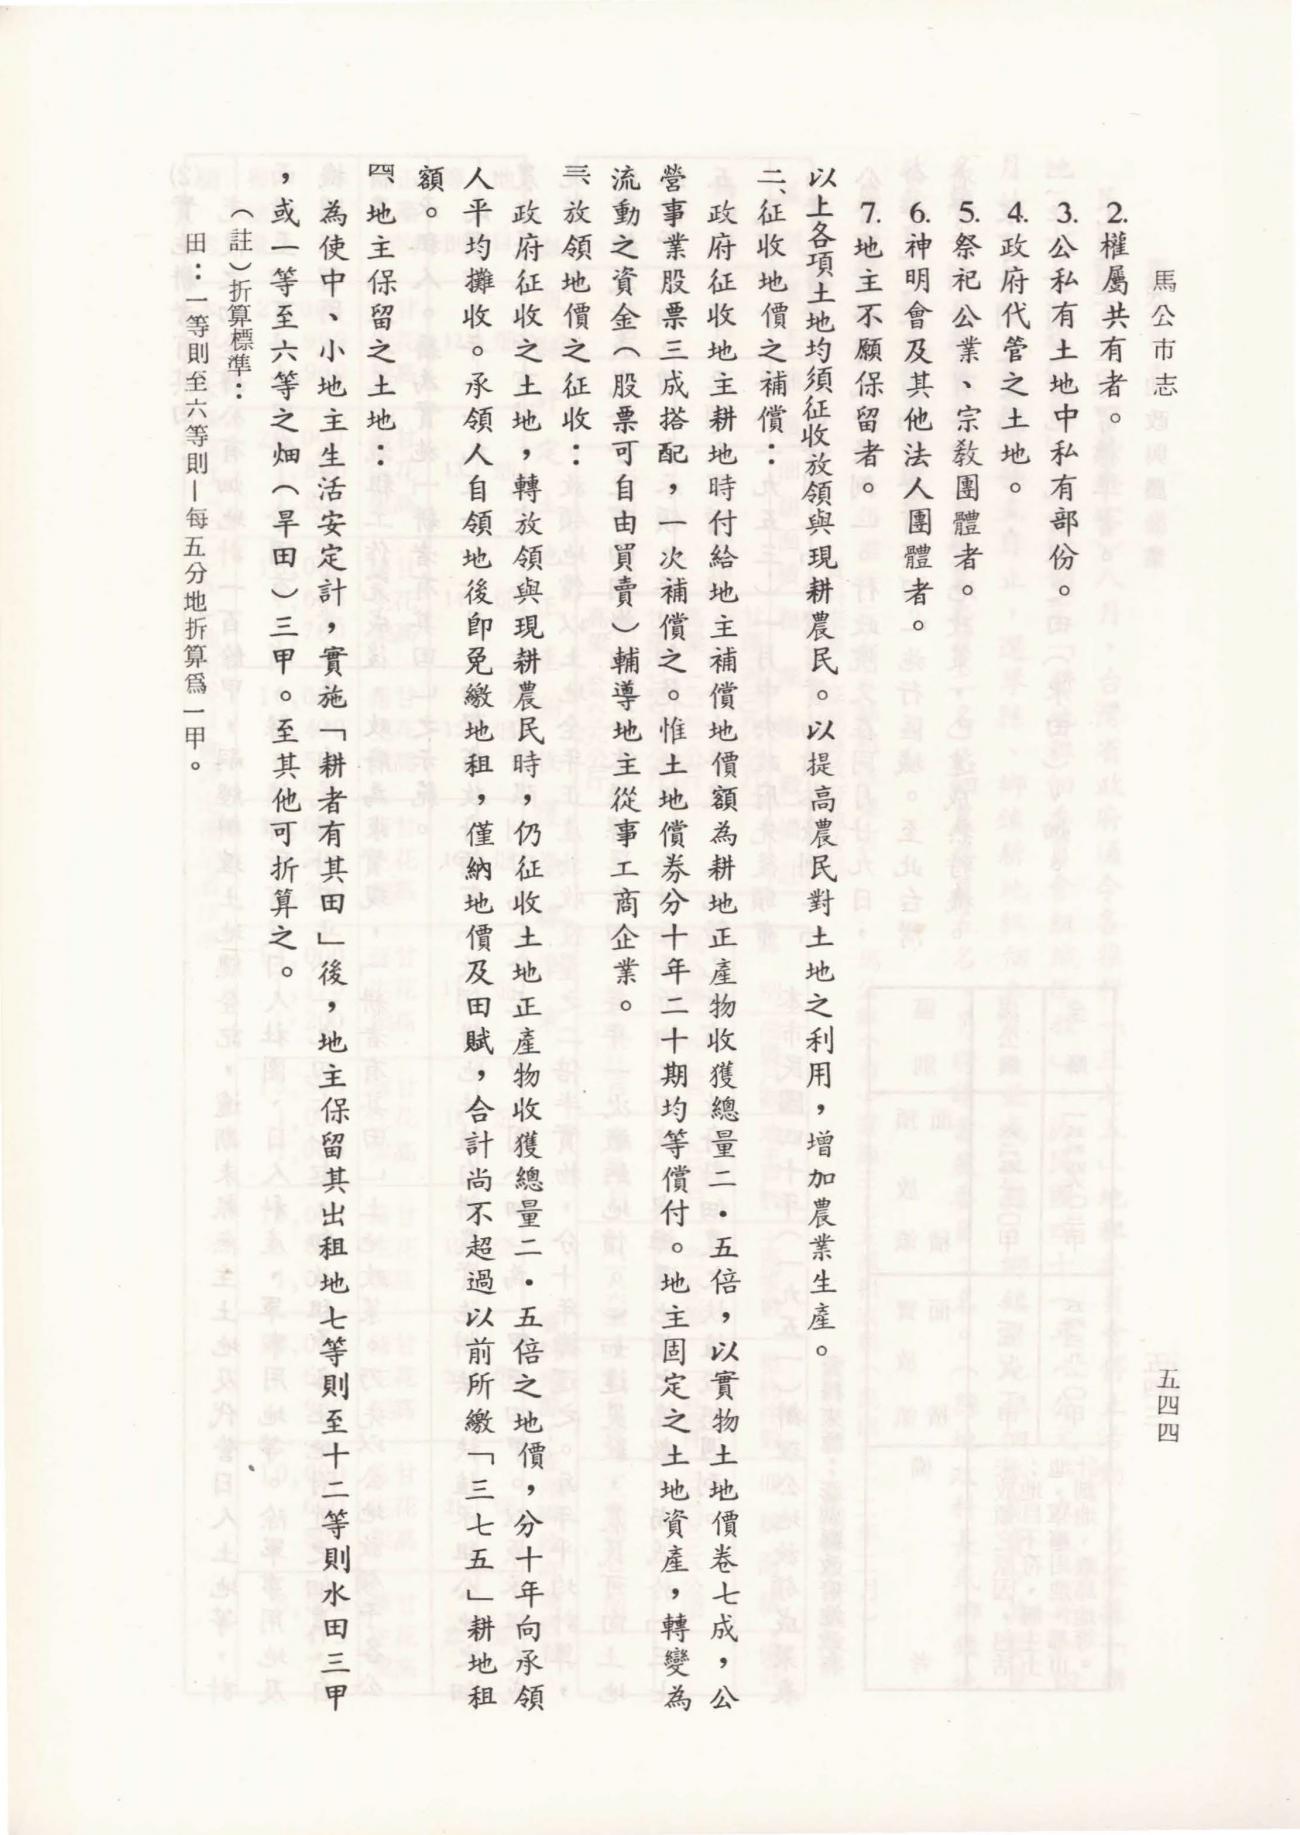 馬公市志
五四四
2.權屬共有者。
3.公私有土地中私有部份。
4.政府代管之土地。
5.祭祀公業、宗教團體者。
6.神明會及其他法人團體者。
7.地主不願保留者。
以上各項土地均須征收放領與現耕農民。以提高農民對土地之利用，增加農業生產。
二、征收地價之補償：
政府征收地主耕地時付給地主補償地價額為耕地正產物收獲總量二・五倍，以實物土地價卷七成，公
營事業股票三成搭配，一次補償之。惟土地償券分十年二十期均等償付。地主固定之土地資產，轉變為
流動之資金（股票可自由買賣）輔導地主從事工商企業。
三、放領地價之征收：
政府征收之土地，轉放領與現耕農民時，仍征收土地正產物收獲總量二・五倍之地價，分十年向承領
人平均攤收。承領人自領地後即免繳地租，僅納地價及田賦，合計尚不超過以前所繳「三七五」耕地租
額。
四、地主保留之土地：
為使中、小地主生活安定計，實施「耕者有其田」後，地主保留其出租地七等則至十二等則水田三甲
，或一等至六等之畑（旱田）三甲。至其他可折算之。
（註）折算標準：
田：一等則至六等則—每五分地折算爲一甲。